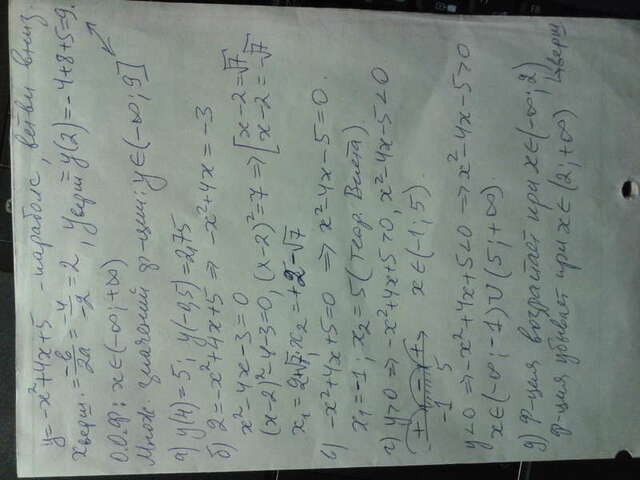 y=-x²+4x+5 -парабола, ветви вниз.
xверш.=-b/2a=-4/-2=2, yверш=y(2)=-4+8+5=9.
О.О.Ф: x∈(-∞;+∞)
Множ. значений ф-ции: y∈(-∞; 9]
а) y(4)=5; y(-0,5)=2,75
б) 2=-x²+4x+5 => -x²+4x=-3
x²-4x-3=0
(x-2)²-4-3=0, (x-2)²=7 => [x-2=√7
x-2=-√7
x₁=2+√7, x₂=+2-√7
в) -x²+4x+5=0 => x²-4x-5=0.
x₁=-1; x₂=5 (теор. Виета)
г) y>0 => -x²+4x+5>0, x²-4x-5<0
+ - + x∈(-1; 5).
-1 5
y<0 => -x²+4x+5<0 => x²-4x-5>0
x∈(-∞;-1)∪(5;+∞).
д) ф-ция возрастает при x∈(-∞; 2)
ф-ция убывает при x∈(2;+∞) xверш